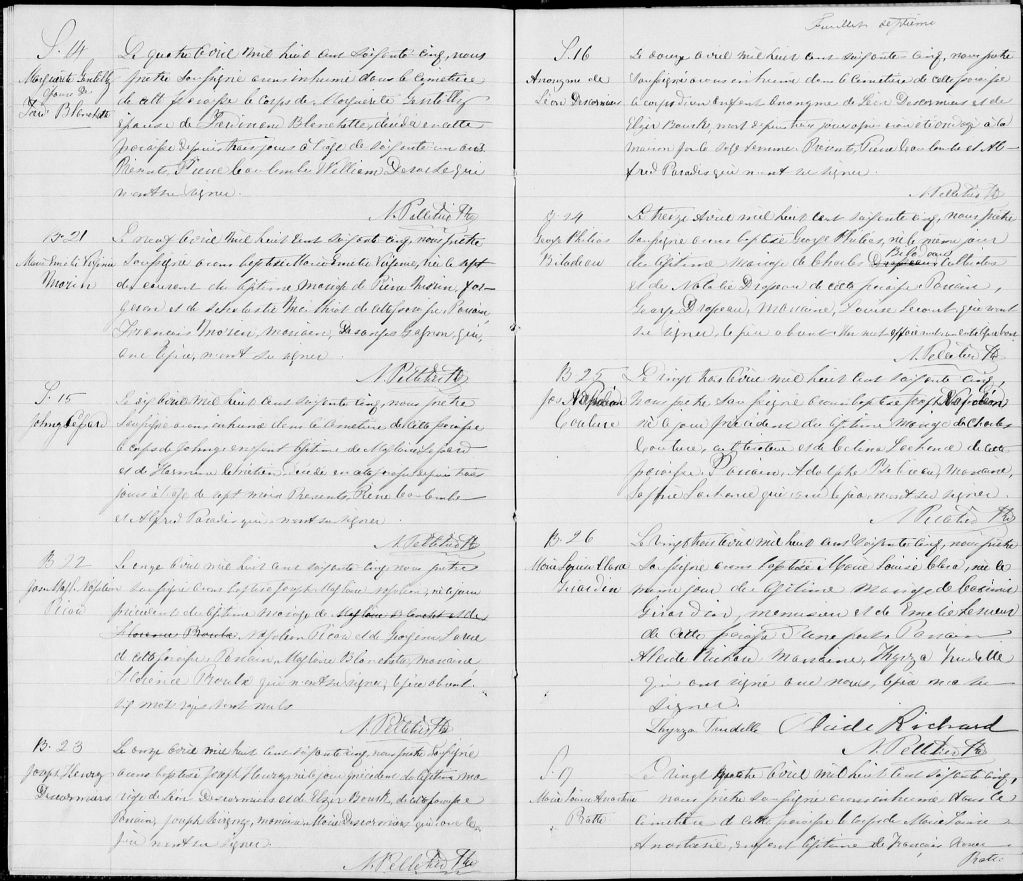 S. 14
Marguerite Gentilly
Épouse de
Ferd. Blanchette
Le quatre Avril mil huit cent soixante cinq, nous
prêtre soussigné avons inhumé dans le cimetière
de cette paroisse le corps de Marguerite Gentilly
épouse de Ferdinand Blanchette, décédée en cette
paroisse depuis trois jours à l'âge de soixante un ans
Présents, Pierre Coulombe William qui
n'ont su signer.
N. Pelletier Ptre
B. 21
Marie Emélie Virginie
Morin
Le neuf Avril mil huit cent soixante cinq, nous prêtre
soussigné avons baptisé Marie Emélie Virginie, née le sept
du courant du légitime mariage de Pierre Morin, for-
geron et de Scholastique de cette paroisse. Parrain
François Morin, marraine, Desanges Gagnon, qui,
ainsi que le père, n'ont su signer.
N. Pelletier Ptre
S. 15
Johny
Le six Avril mil huit cent soixante cinq, nous prêtre
soussigné avons inhumé dans le cimetière de cette paroisse
le corps de Johny enfant légitime de
et de Hermine décédé en cette paroisse depuis trois
jours à l'âge de sept mois Présents, Pierre Coulombe
et Alfred Paradis qui n'ont su signer.
N. Pelletier Ptre
B. 22
Jos. Napoléon
Picard
Le onze Avril mil huit cent soixante cinq nous prêtre
soussigné avons baptisé Joseph Napoléon, né le jour
précédent du légitime mariage de et de
Florence Proulx, Napoléon Picard et de
de cette paroisse, Parrain, Blanchette, marraine
Florence Proulx qui n'ont su signer, le père absent.
six mots rayés sont nuls
N. Pelletier Ptre
B. 23
Joseph Henry
Descormiers
Le onze Avril mil huit cent soixante cinq, nous prêtre soussigné
avons baptisé Joseph Henry, né le jour précédent du légitime ma-
riage de Léon Descormiers et de Elzer Bourk, de cette paroisse
Parrain, Joseph marraine Marie Descormiers qui ainsi que le
père n'ont su signer.
N. Pelletier Ptre
Feuillet septième
S. 16
Anonyme de
Léon Descormiers
Le douze Avril mil huit cent soixante cinq, nous prêtre
soussigné avons inhumé dans le cimetière de cette paroisse
le corps d'un enfant Anonyme de Léon Descormiers et de
Elzer Bourk, mort depuis trois jours après avoir été ondoyé à la
maison par la sage femme. Présents, Pierre Coulombe et Al-
fred Paradis qui n'ont su signer.
N. Pelletier Ptre
B. 24
George Philias
Bilodeau
Le treize Avril mil huit cent soixante cinq, nous prêtre
soussigné avons baptisé George Philias, né le même jour
Bilodeau
du légitime mariage de Charles Drapeau cultivateur
et de Natalie Drapeau de cette paroisse. Parrain,
George Drapeau, Marraine, Louise qui n'ont
su signer, le père absent. Un mot effacé
N. Pelletier Ptre
B. 25
Jos Napoléon
Couture
Le vingt trois Avril mil huit cent soixante cinq,
nous prêtre soussigné avons baptisé Joseph Napoléon
né le jour précédent du légitime mariage de Charles
Couture, cultivateur et de Lachance de cette
paroisse. Parrain, Adolphe Bilodeau, Marraine,
Sophie Lachance qui ainsi que le père n'ont su signer.
N. Pelletier Ptre
B. 26
Marie Louise Clara
Girardin
Le vingt trois Avril mil huit cent soixante cinq, nous prêtre
soussigné avons baptisé Marie Louise Clara, née le
même jour du légitime mariage de Casimir
Girardin, menuisier et de Emélie Lesieur
de cette paroisse d'une part. Parrain
Alcide Richard Marraine, Thyrza Trudelle
qui ont signé avec nous, le père n'a su
signer.
Thyrza Trudelle Alcide Richard
N. Pelletier Ptre
S. 17
Marie Louise Anastasie
Pratte
Le vingt quatre Avril mil huit cent soixante cinq,
nous prêtre soussigné avons inhumé dans le
cimetière de cette paroisse le corps de Marie Louise
Anastasie, enfant légitime de François Xavier
Pratte